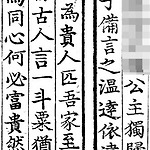 公主獨歸
子備言之溫達依違
為貴人匹吾家至
古人言一斗粟猶
為同心何必富貴然